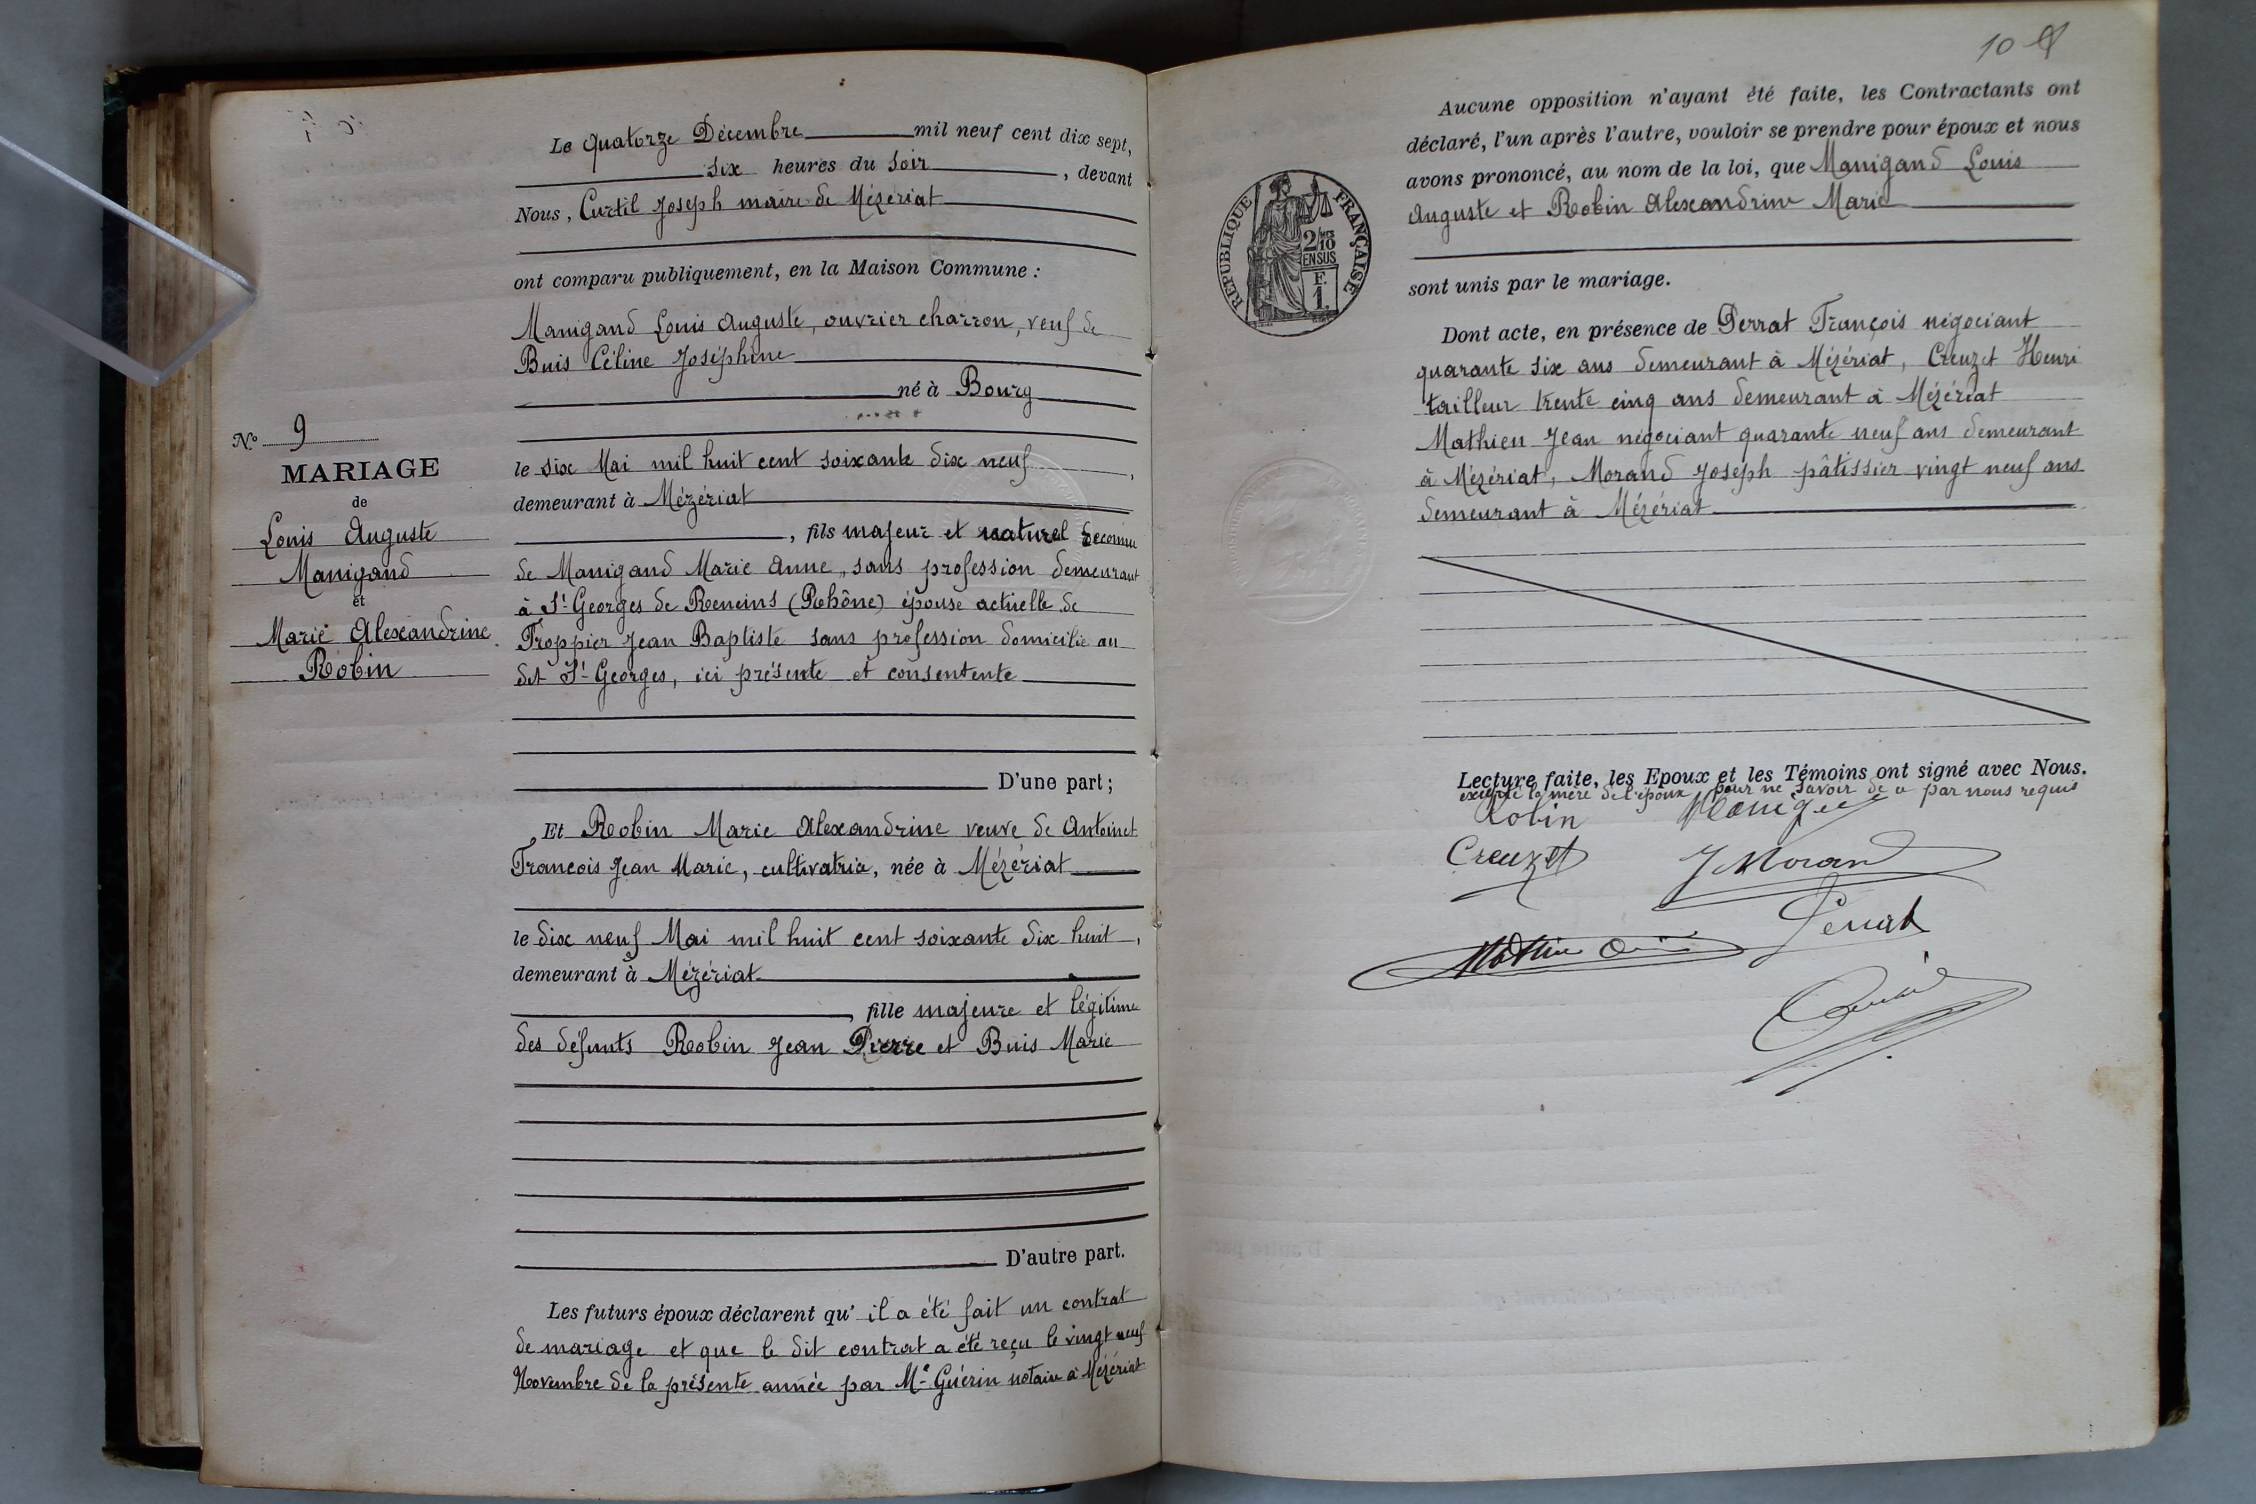 Le quatorze Décembre mil neuf cent dix sept,
six heures du soir, devant
Nous, Curtil Joseph maire de Mézériat
ont comparu publiquement, en la Maison Commune :
Manigand Louis Auguste, ouvrier charron, veuf de
Buis Céline Joséphine
né à Bourg
le six Mai mil huit cent soixante dix neuf,
demeurant à Mézériat
, fils majeur et naturel reconnu
de Manigand Marie Anne, sans profession demeurant
à St Georges de Reneins (Rhône) épouse actuelle de
Troppier Jean Baptiste sans profession domicilié au
dit St Georges, ici présente et consentente
D'une part ;
Et Robin Marie Alexandrine veuve de Antoinet
François Jean Marie, cultivatrice, née à Mézériat
le dix neuf Mai mil huit cent soixante dix huit,
demeurant à Mézériat
, fille majeure et légitime
des défunts Robin Jean Pierre et Buis Marie
D'autre part.
Les futurs époux déclarent qu' il a été fait un contrat
de mariage et que le dit contrat a été reçu le vingt neuf
Novembre de la présente année par Me Guérin notaire à Mézériat
N° 9
MARIAGE
de
Louis Auguste
Manigand
et
Marie Alexandrine
Robin
10
Aucune opposition n'ayant été faite, les Contractants ont
déclaré, l'un après l'autre, vouloir se prendre pour époux et nous
avons prononcé, au nom de la loi, que Manigand Louis
Auguste et Robin Alexandrine Marie
sont unis par le mariage.
REPUBLIQUE FRANÇAISE
2/10
EN SUS
F.
1.
Dont acte, en présence de Perrat François négociant
quarante six ans demeurant à Mézériat, Creuzet Henri
tailleur trente cinq ans demeurant à Mézériat
Mathieu Jean négociant quarante neuf ans demeurant
à Mézériat, Morand Joseph pâtissier vingt neuf ans
demeurant à Mézériat
Lecture faite, les Epoux et les Témoins ont signé avec Nous.
excepté la mère de l'époux pour ne savoir de ce par nous requis
Robin
Creuzet J Morand
Perrat